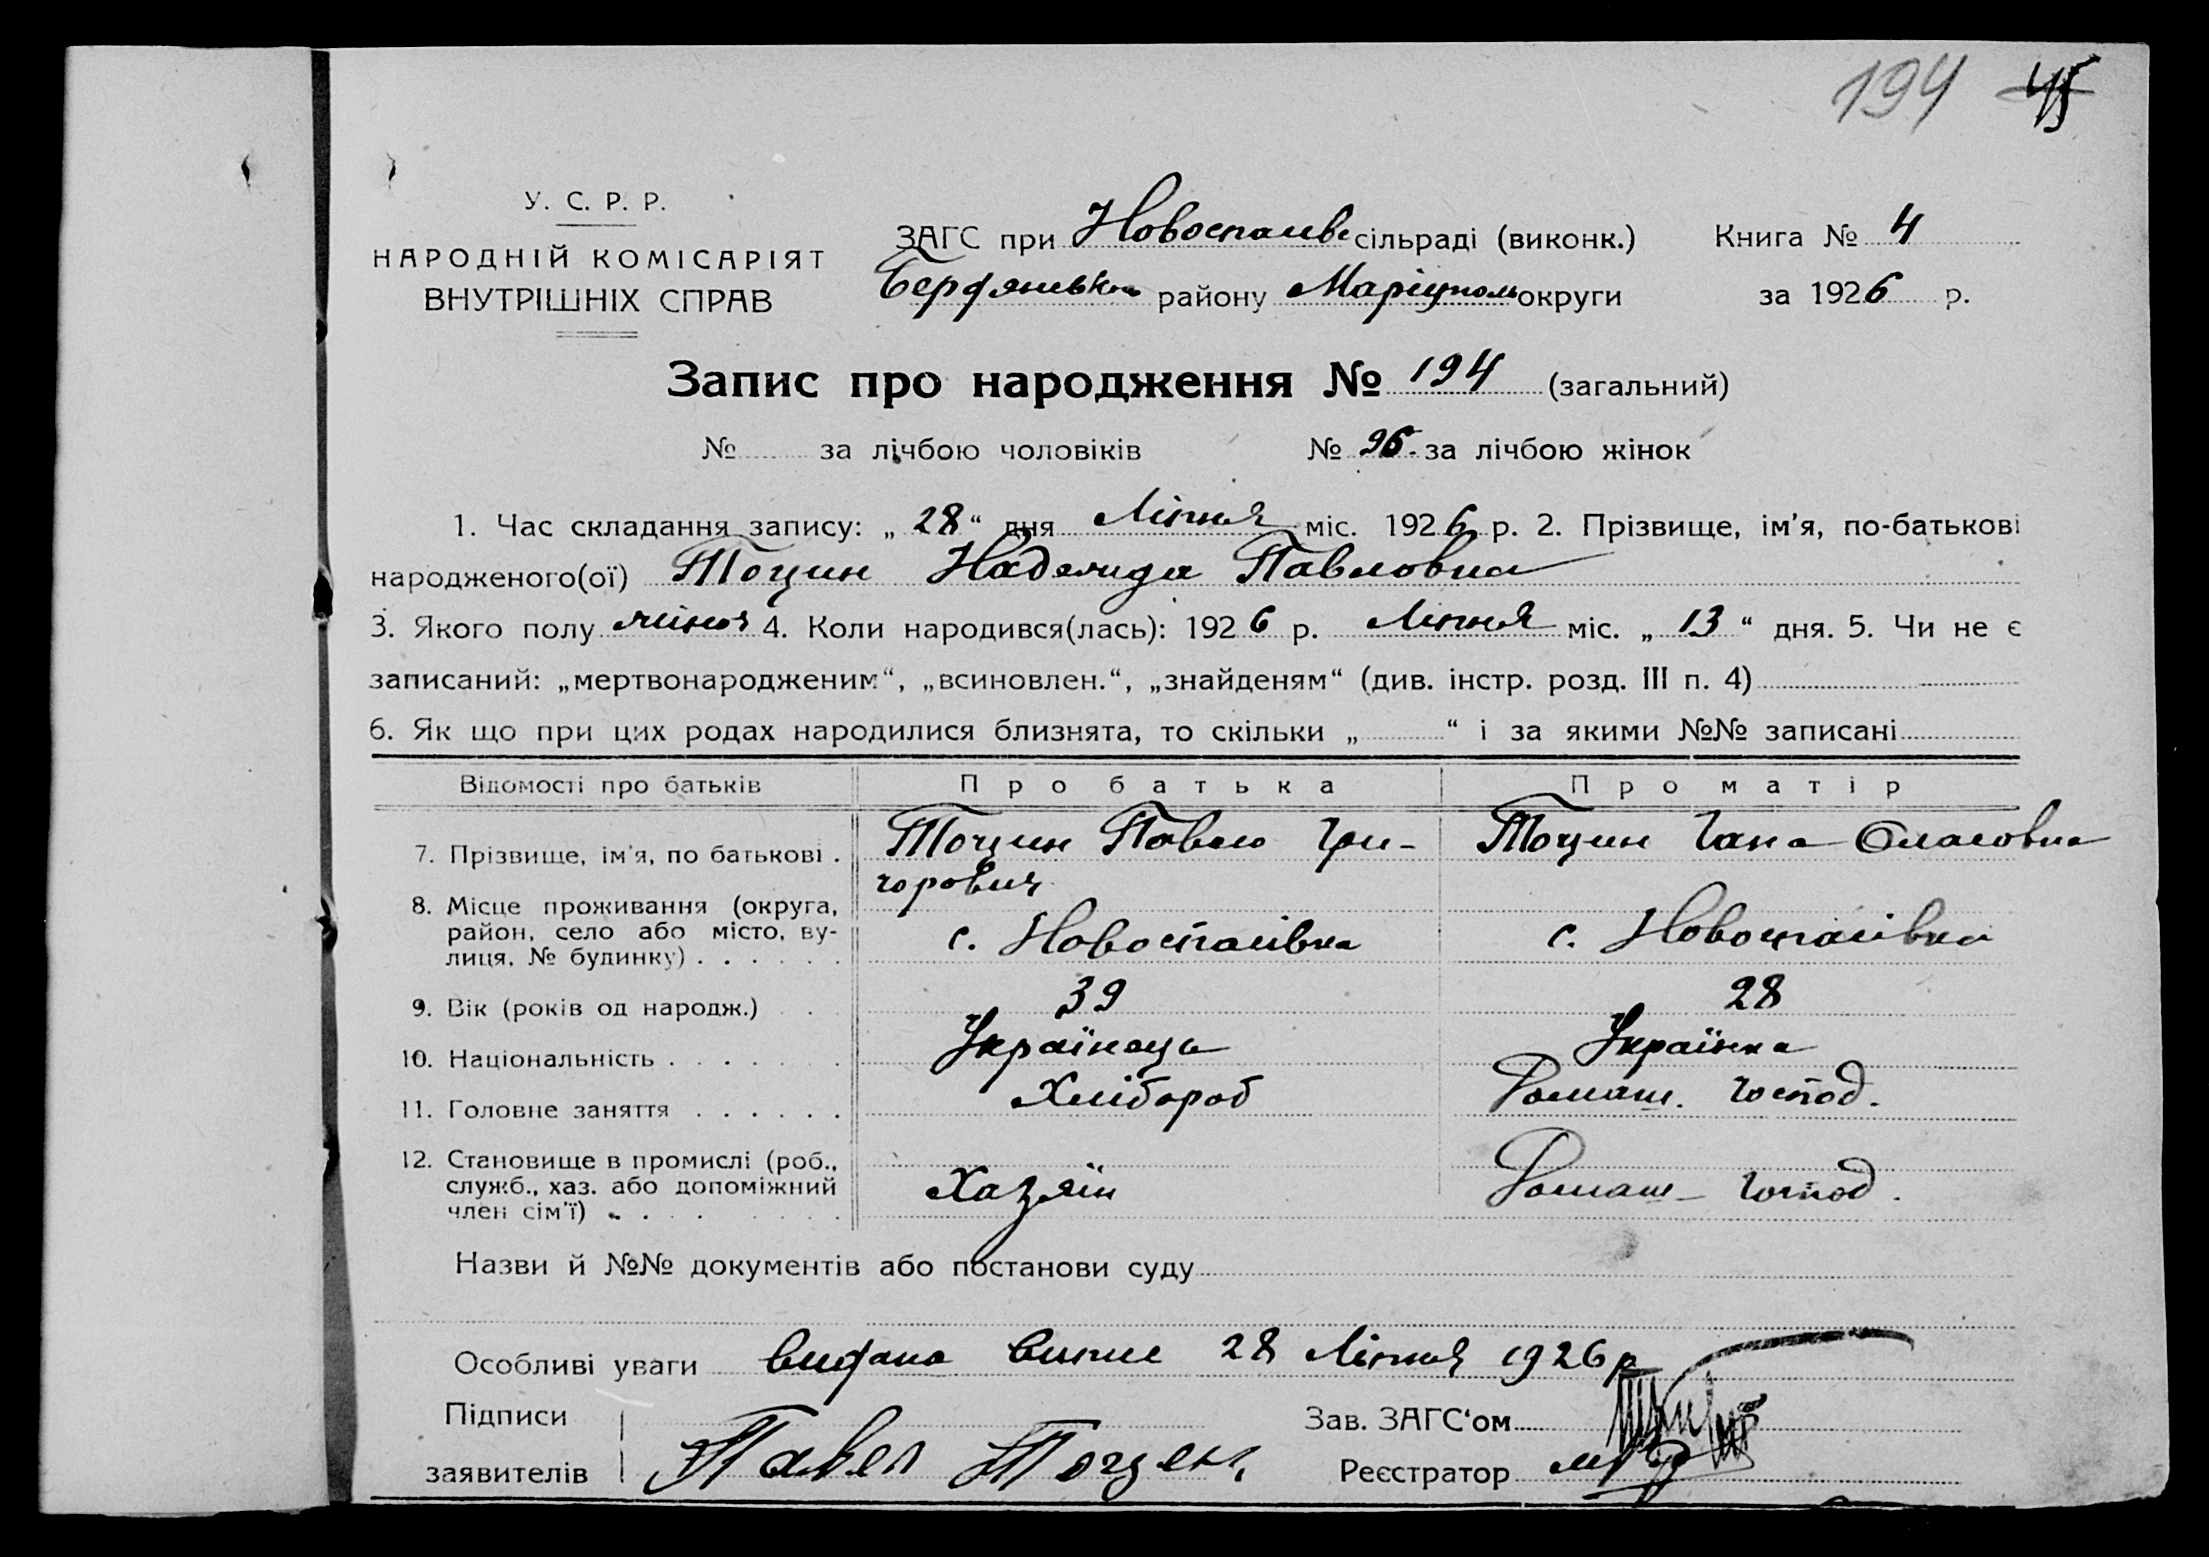 194 45
У. С. Р. Р.
НАРОДНІЙ КОМІСАРІЯТ
ВНУТРІШНІХ СПРАВ
ЗАГС при Новоспасівс сільраді (виконк.) Книга № 4
Бердянськ району Маріуполь округи за 1926 р.
Запис про народження № 194 (загальний)
№ за лічбою чоловіків № 96 за лічбою жінок
1. Час складання запису: „ 28 “ дня Ліпня міс. 1926 р. 2. Прізвище, ім’я, по-батькові
народженого(ої) Тоцин Надежда Павловна
3. Якого полу жіноч 4. Коли народився(лась): 1926 р. Ліпня міс. „ 13 “ дня. 5. Чи не є
записаний: „мертвонародженим“, „всиновлен.“, „знайденям“ (див. інстр. розд. III п. 4)
6. Як що при цих родах народилися близнята, то скільки „ “ і за якими №№ записані
Відомості про батьків Про батька Про матір
7. Прізвище, ім’я, по батькові . Тоцин Павло Гри- Тоцин Гана
горович
8. Місце проживання (округа,
район, село або місто, ву- с. Новоспасівка с. Новоспасівка
лиця, № будинку) . . . . . .
9. Вік (років од народж.) 39 28
10. Національність . . . . . . . Українець Українка
11. Головне заняття . . . . . . Хлібороб Домаш. господ.
12. Становище в промислі (роб.,
служб., хаз. або допоміжний Хазяїн Домаш- господ.
член сім’ї) . . . . . .
Назви й №№ документів або постанови суду
Особливі уваги видана випис 28 Ліпня 1926 р
Підписи Зав. ЗАГС‘ом
заявителів Павел Тоцен Реєстратор